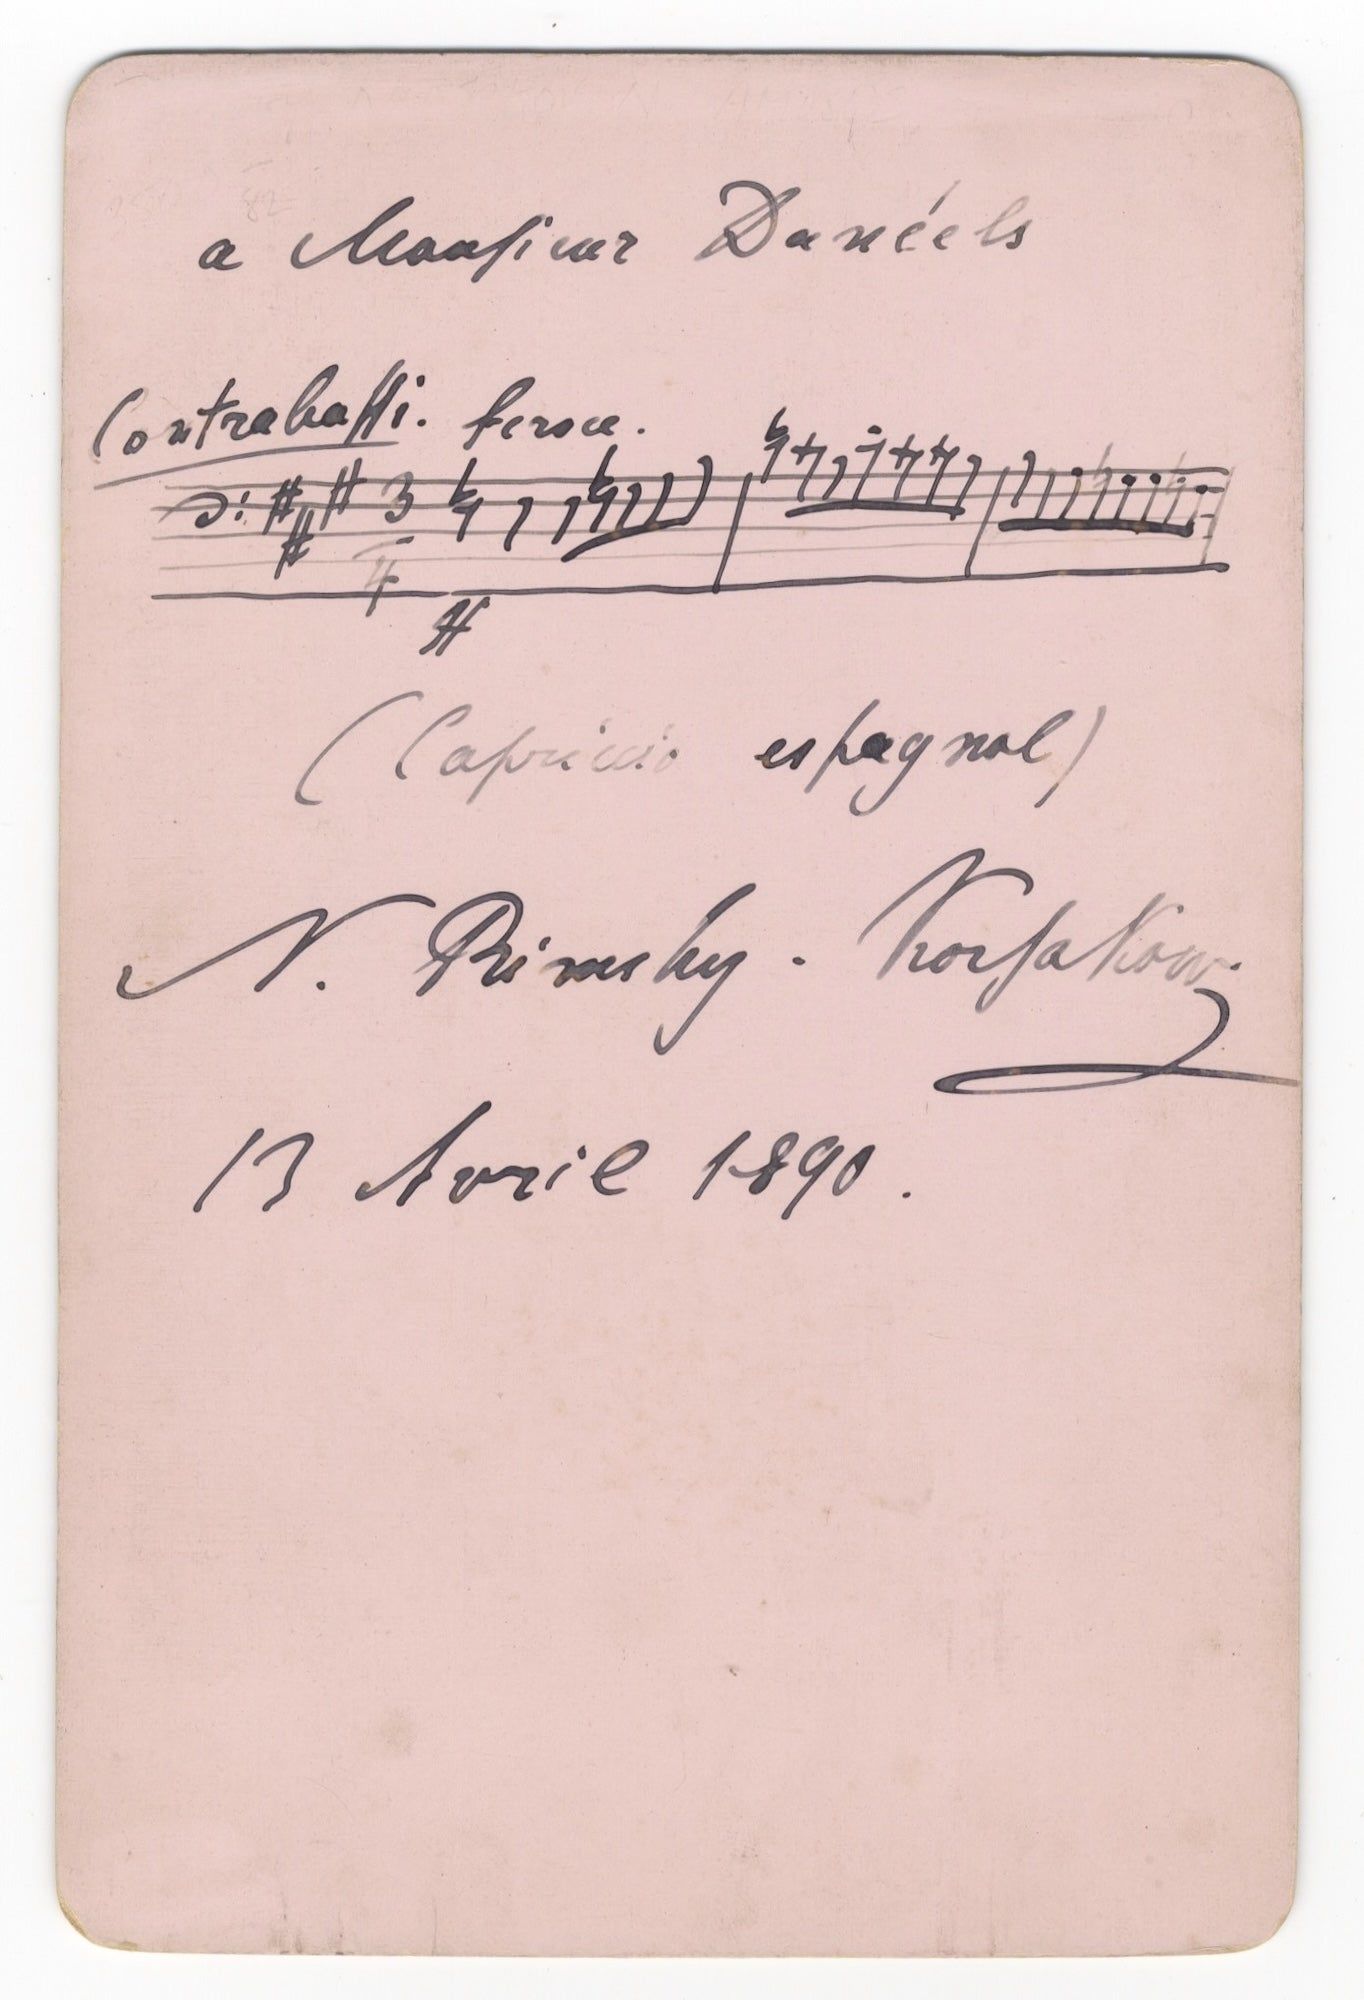 a Monsieur Danéels
Contrabassi. feroce.
3
4
ff
(Capriccio espagnol)
N. Rimsky-Korsakow.
13 Avril 1890.